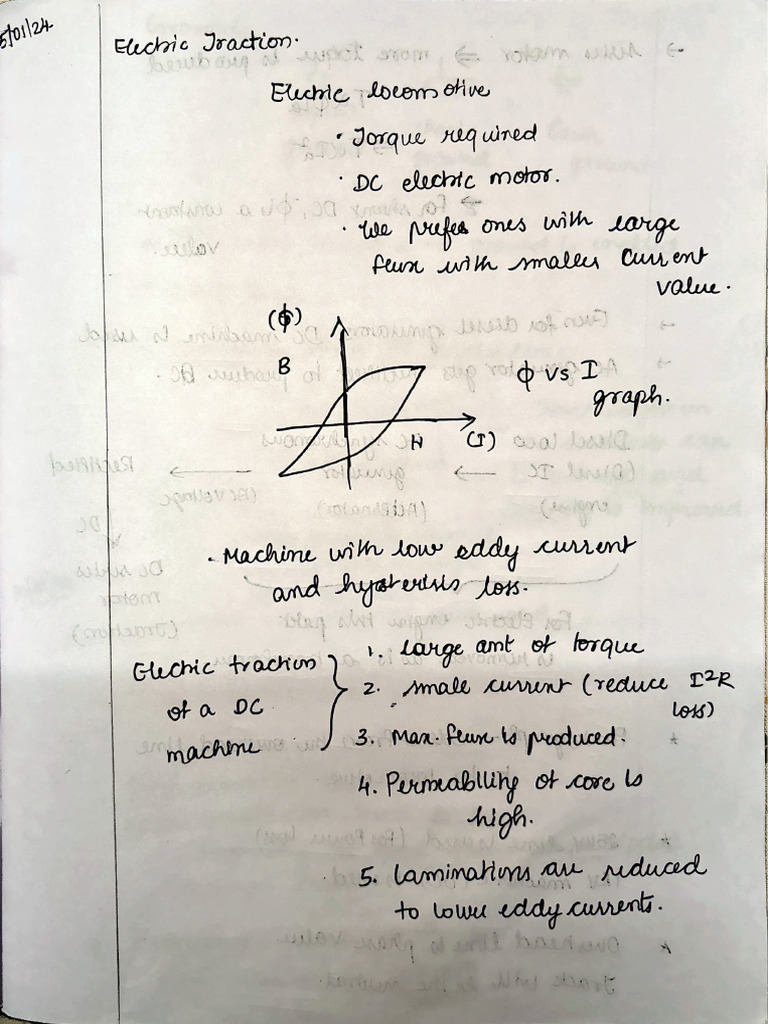 5/01/24
Electric Traction.
Electric locomotive
• Torque required
• DC electric motor.
• We prefer ones with large
flux with smaller current
value.
(ϕ)
B
H
(I)
ϕ vs I
graph.
• Machine with low eddy current
and hysterisis loss.
Electric traction
of a DC
machine
1. Large amt of torque
2. small current (reduce I²R
loss)
3. Max. flux is produced.
4. Permeability of core is
high.
5. Laminations are reduced
to lower eddy currents.